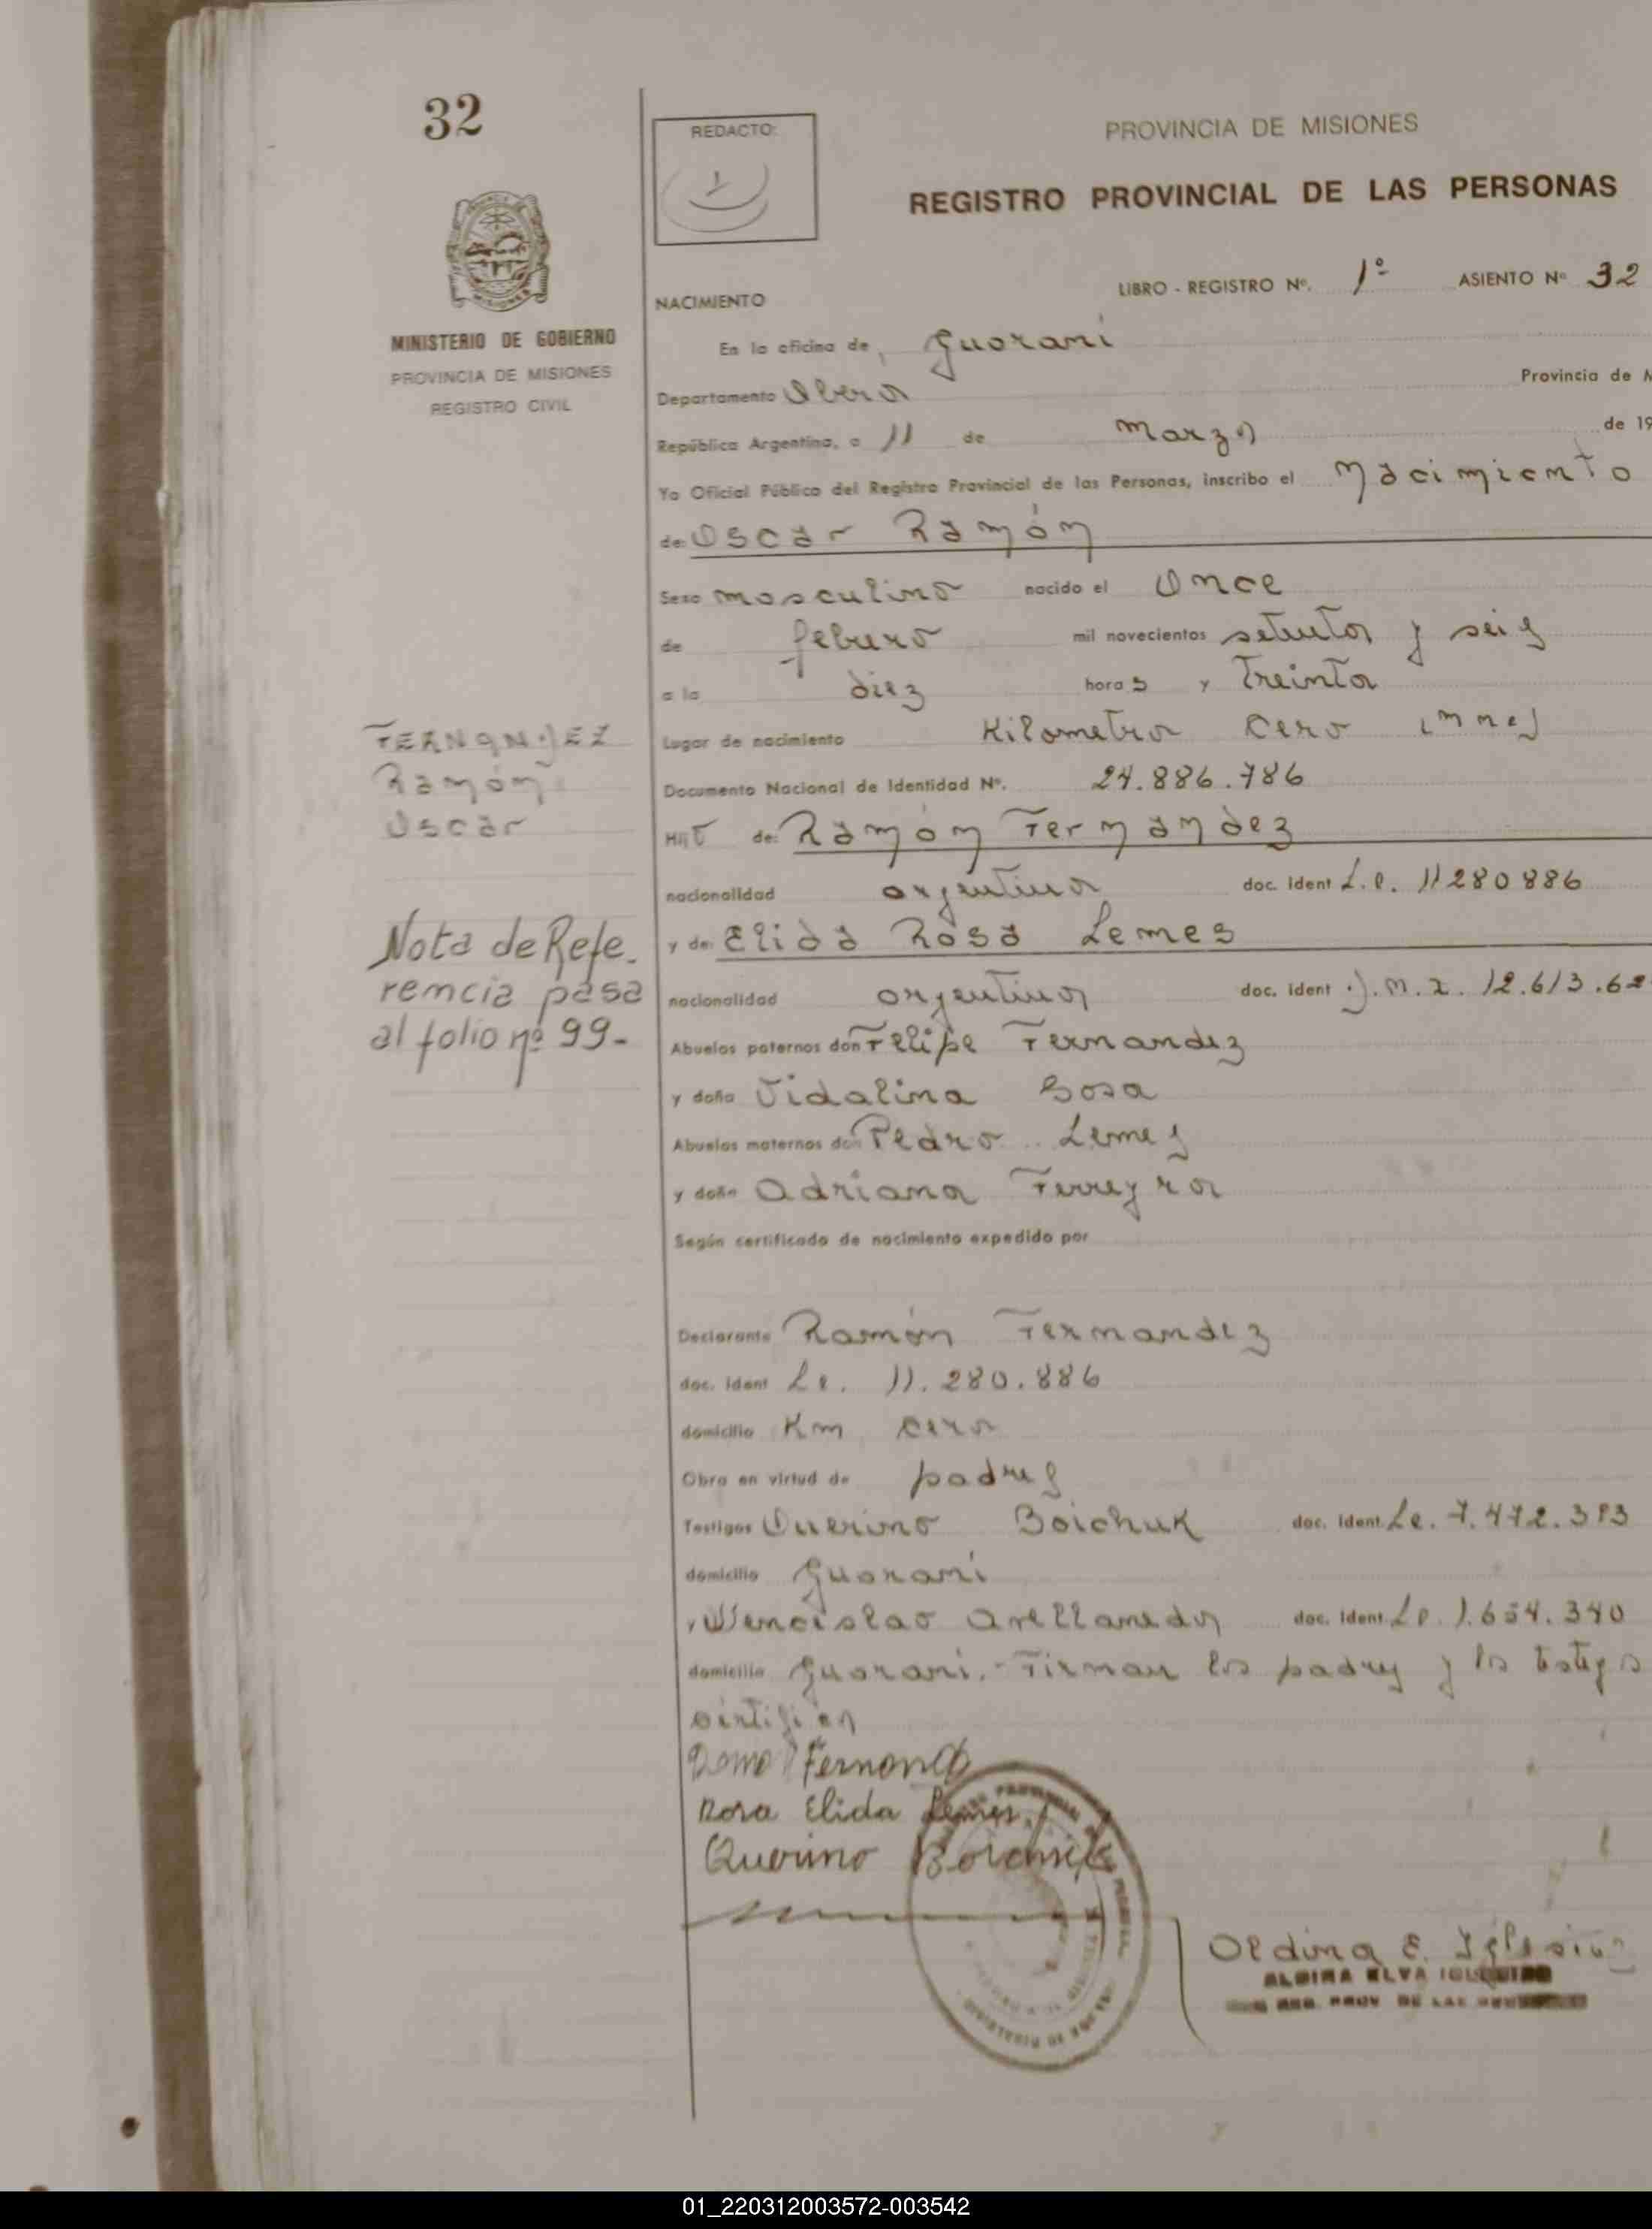 32
REDACTO:
PROVINCIA DE MISIONES
REGISTRO PROVINCIAL DE LAS PERSONAS
LIBRO - REGISTRO Nº. 1º ASIENTO Nº 32
MINISTERIO DE GOBIERNO
PROVINCIA DE MISIONES
REGISTRO CIVIL
NACIMIENTO
En la oficina de, Guarani
Departamento Obera Provincia de M
República Argentina, a 11 de Marzo de 19
Yo Oficial Público del Registro Provincial de las Personas, inscribo el Nacimiento
de: Oscar Ramón
Sexo masculino nacido el Once
de febrero mil novecientos setenta y seis
a la diez horas y Treinta
Lugar de nacimiento Kilometro Cero
Documento Nacional de Identidad Nº. 24.886.786
FERNANDEZ
Ramón
Oscar
Hijo de: Ramón Fernández
nacionalidad argentina doc. ident L.e. 11280886
y de: Elida Rosa Lemes
nacionalidad argentina doc. ident D.N.I. 12.613.62
Nota de Refe-
rencia pasa
al folio nº 99-
Abuelos paternos don Felipe Fernandez
y doña Vidalina Sosa
Abuelos maternos don Pedro Lemes
y doña Adriana Ferreyra
Según certificado de nacimiento expedido por
Declarante Ramón Fernandez
doc. ident Le. 11.280.886
domicilio Km cero
Obra en virtud de padres
Testigos Querino Boichuk doc. ident. Le. 7.472.383
domicilio Guarani
y Wenceslao Arellaneda doc. ident. Le. 1.654.340
domicilio Guarani.- Firman los padres y los testigos
Fernand
Rosa Elida Lemes
Querino Boichuk
Aldina E. Iglesias
ALDINA ELVA IGLESIAS
REG. PROV. DE LAS
01_220312003572-003542